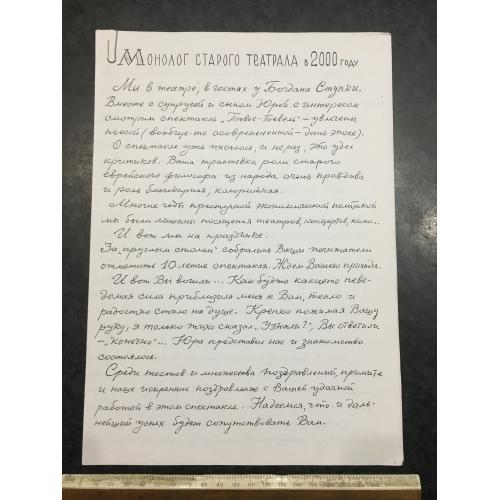 Монолог старого театрала в 2000 году
Мы в театре, в гостях у Богдана Ступки.
Вместе с супругой и сыном Юрой с интересом
смотрим спектакль „Тевье-Тевель" – увлечены
пьесой (вообще-то осовремененной – дань эпохе).
О спектакле уже писалось, и не раз, это удел
критиков. Ваша трактовка роли старого
еврейского философа из народа очень правдива
и роль благодарная, колоритная.
Многие годы преступной экономической политикой
мы были лишены посещения театров, концертов, кино...
И вот мы на празднике.
За „круглым столом" собрались Ваши почитатели
отметить 10 летие спектакля. Ждем Вашего прихода.
И вот Вы вошли... Как будто какая-то неве-
домая сила приблизила меня к Вам, тепло и
радостно стало на душе. Крепко пожимая Вашу
руку, я только тихо сказал „Узнали?", Вы ответили
– „конечно"... Юра представил нас и знакомство
состоялось.
Среди тостов и множества поздравлений, примите
и наше искреннее поздравление с Вашей удачной
работой в этом спектакле. Надеемся, что и даль-
нейший успех будет сопутствовать Вам.